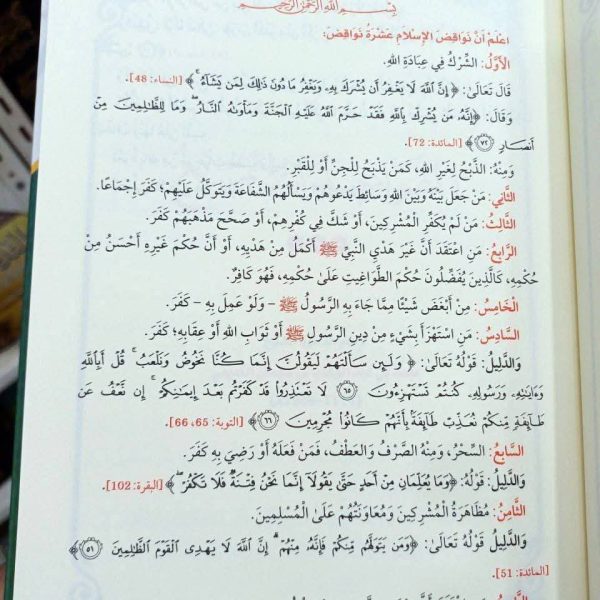 بِسْمِ اللَّهِ الرَّحْمَنِ الرَّحِيمِ
اعْلَمْ أَنَّ نَوَاقِضَ الإِسْلَامِ عَشَرَةُ نَوَاقِضَ:
الأَوَّلُ: الشِّرْكُ فِي عِبَادَةِ اللهِ.
قَالَ تَعَالَى: ﴿إِنَّ ٱللَّهَ لَا يَغْفِرُ أَن يُشْرَكَ بِهِۦ وَيَغْفِرُ مَا دُونَ ذَٰلِكَ لِمَن يَشَآءُ ۚ﴾ [النساء: 48].
وَقَالَ: ﴿إِنَّهُۥ مَن يُشْرِكْ بِٱللَّهِ فَقَدْ حَرَّمَ ٱللَّهُ عَلَيْهِ ٱلْجَنَّةَ وَمَأْوَىٰهُ ٱلنَّارُ ۖ وَمَا لِلظَّٰلِمِينَ مِنْ
أَنصَارٍ ﴿٧٢﴾﴾ [المائدة: 72].
وَمِنْهُ: الذَّبْحُ لِغَيرِ اللهِ، كَمَنْ يَذْبَحُ لِلْجِنِّ أَوْ لِلْقَبْرِ.
الثَّانِي: مَنْ جَعَلَ بَيْنَهُ وَبَيْنَ اللهِ وَسَائِطَ يَدْعُوهُمْ وَيَسْأَلُهُمُ الشَّفَاعَةَ وَيَتَوَكَّلُ عَلَيْهِمْ؛ كَفَرَ إِجْمَاعًا.
الثَّالِثُ: مَنْ لَمْ يُكَفِّرِ الْمُشْرِكِينَ، أَوْ شَكَّ فِي كُفْرِهِمْ، أَوْ صَحَّحَ مَذْهَبَهُمْ كَفَرَ.
الرَّابِعُ: مَنِ اعْتَقَدَ أَنَّ غَيْرَ هَدْيِ النَّبِيِّ ﷺ أَكْمَلُ مِنْ هَدْيِهِ، أَوْ أَنَّ حُكْمَ غَيْرِهِ أَحْسَنُ مِنْ
حُكْمِهِ، كَالَّذِينَ يُفَضِّلُونَ حُكْمَ الطَّوَاغِيتِ عَلَى حُكْمِهِ، فَهُوَ كَافِرٌ.
الْخَامِسُ: مِنْ أَبْغَضَ شَيْئًا مِمَّا جَاءَ بِهِ الرَّسُولُ ﷺ - وَلَوْ عَمِلَ بِهِ - كَفَرَ.
السَّادِسُ: مَنِ اسْتَهْزَأَ بِشَيْءٍ مِنْ دِينِ الرَّسُولِ ﷺ أَوْ ثَوَابِ اللهِ أَوْ عِقَابِهِ؛ كَفَرَ.
وَالدَّلِيلُ: قَوْلُهُ تَعَالَى: ﴿ وَلَئِن سَأَلْتَهُمْ لَيَقُولُنَّ إِنَّمَا كُنَّا نَخُوضُ وَنَلْعَبُ ۚ قُلْ أَبِٱللَّهِ
وَءَايَٰتِهِۦ وَرَسُولِهِۦ كُنتُمْ تَسْتَهْزِءُونَ ﴿٦٥﴾ لَا تَعْتَذِرُوا۟ قَدْ كَفَرْتُم بَعْدَ إِيمَٰنِكُمْ ۚ إِن نَّعْفُ عَن
طَآئِفَةٍ مِّنكُمْ نُعَذِّبْ طَآئِفَةًۢ بِأَنَّهُمْ كَانُوا۟ مُجْرِمِينَ ﴿٦٦﴾﴾ [التوبة: 65، 66].
السَّابِعُ: السِّحْرُ، وَمِنْهُ الصَّرْفُ وَالعَطْفُ، فَمَنْ فَعَلَهُ أَوْ رَضِيَ بِهِ كَفَرَ.
وَالدَّلِيلُ: قَوْلُهُ: ﴿وَمَا يُعَلِّمَانِ مِنْ أَحَدٍ حَتَّىٰ يَقُولَآ إِنَّمَا نَحْنُ فِتْنَةٌ فَلَا تَكْفُرْ ۖ﴾ [البقرة: 102].
الثَّامِنُ: مُظَاهَرَةُ الْمُشْرِكِينَ وَمُعَاوَنَتُهُمْ عَلَى الْمُسْلِمِينَ.
وَالدَّلِيلُ قَوْلُهُ تَعَالَى: ﴿وَمَن يَتَوَلَّهُم مِّنكُمْ فَإِنَّهُۥ مِنْهُمْ ۗ إِنَّ ٱللَّهَ لَا يَهْدِى ٱلْقَوْمَ ٱلظَّٰلِمِينَ ﴿٥١﴾﴾
[المائدة: 51].